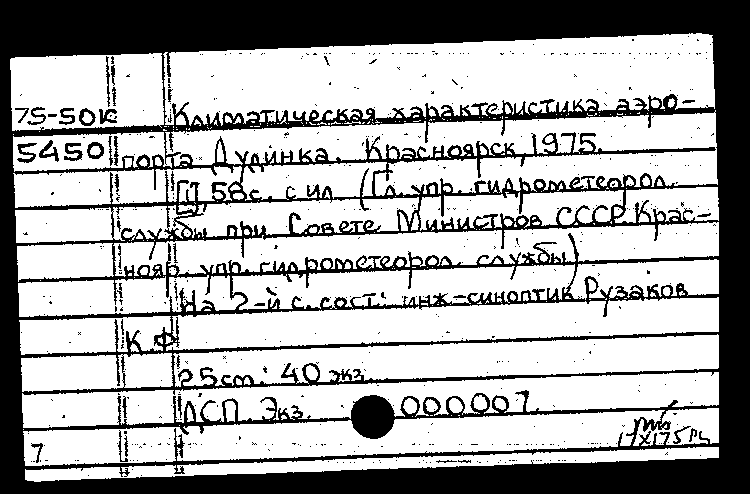 75-50к Климатическая характеристика аэро-
5450 порта Дудинка. Красноярск, 1975.
[I], 58с. с ил (Гл. упр. гидрометеорол.
службы при Совете Министров СССР. Крас-
нояр. упр. гидрометеорол. службы)
На 2-й с. сост.: инж-синоптик Рузаков
К.Ф
25см: 40 экз.
ДСП. Экз. 000007.
7